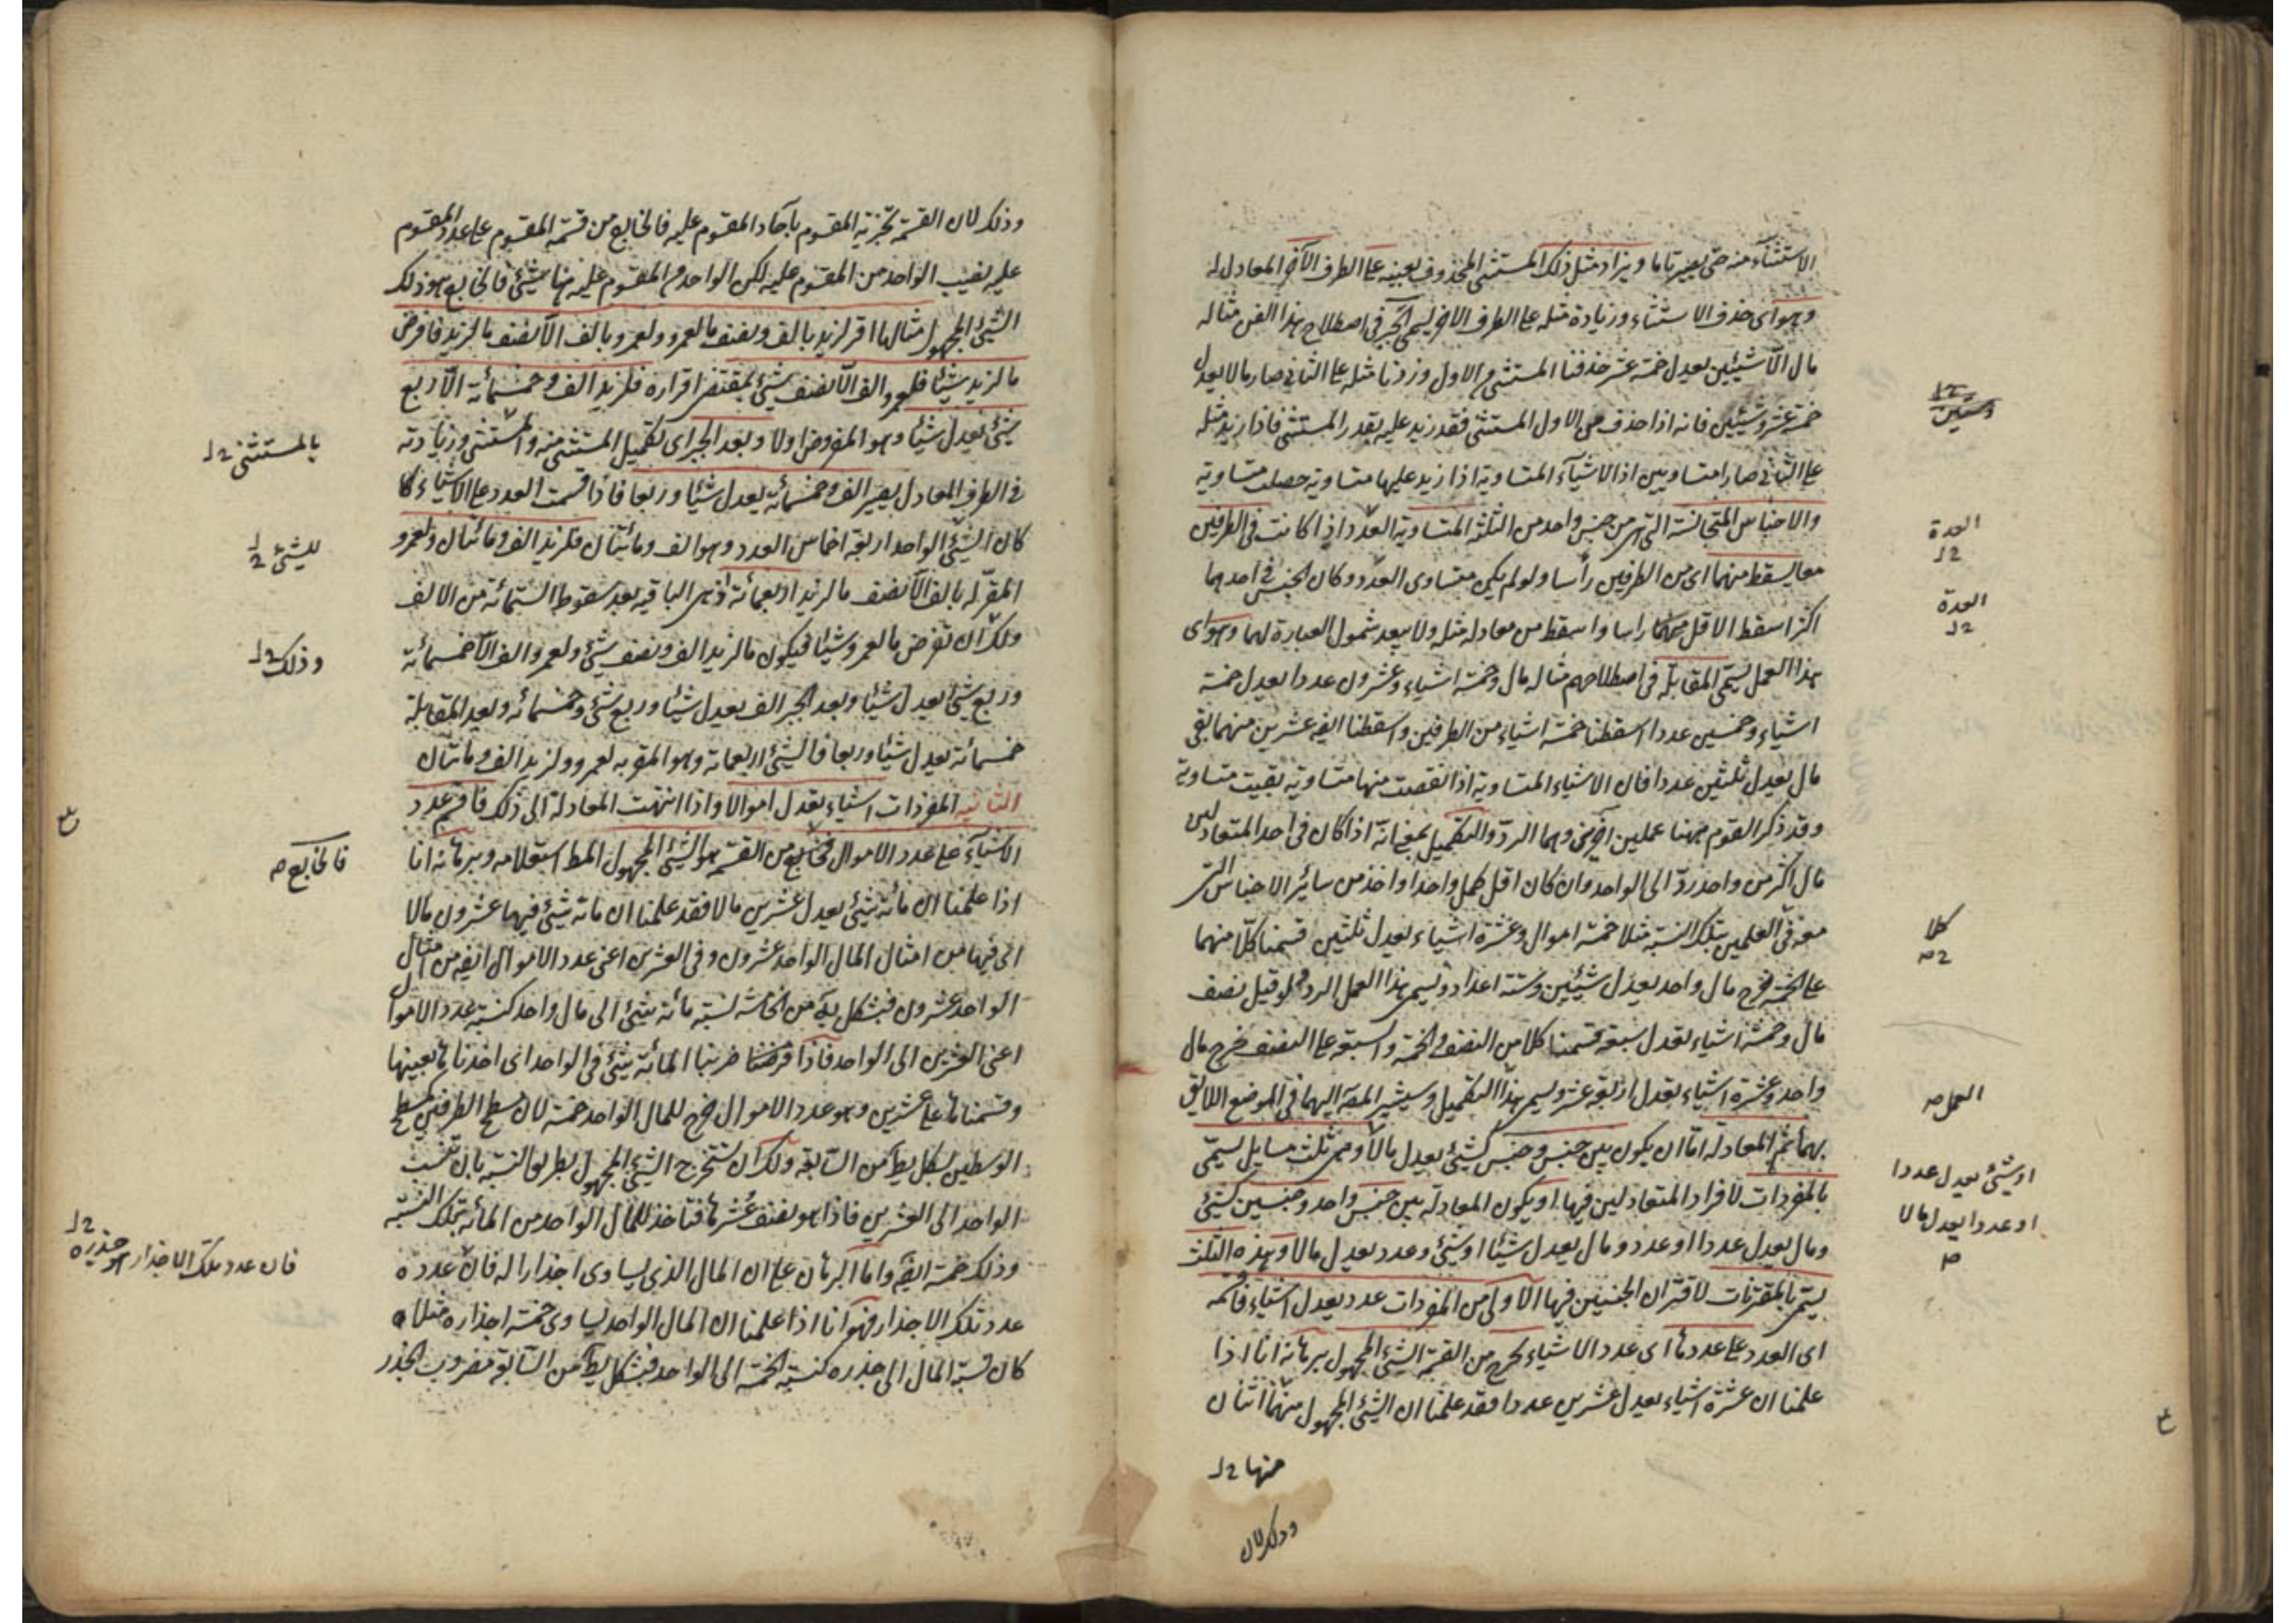 الاستثناء منه حتى يصير تاما ويزاد مثل ذلك المستثنى المحذوف بعينه على الطرف الآخر المعادل له
وهو اى حذف الاستثناء وزيادة مثله على الطرف الاخر يسمى الجبر فى اصطلاح هذا الفن مثاله
مال الا شيئين يعدل خمسة عشر حذفنا المستثنى من الاول وزدنا مثله على الثانى صار مالا يعدل
خمسة عشر وشيئين فانه اذا حذف من الاول المستثنى فقد زيد عليه بقدر المستثنى فاذا زيد مثله
على الثانى صارا متساويين اذ الاشياء المتساوية اذا زيد عليها متساوية حصلت متساوية
والاجناس المتجانسة التى هى من جنس واحد من الثلثة المتساوية العدد اذا كانت فى الطرفين
معا يسقط منهما اى من الطرفين رأسا ولو لم يكن متساوى العدد وكان الجنس فى احدهما
اكثر اسقط الاقل منهما راسا واسقط من معادله مثله ولا يبعد شمول العبارة لهما وهو اى
هذا العمل يسمى المقابلة فى اصطلاحهم مثاله مال وخمسة اشياء وعشرون عددا يعدل خمسة
اشياء وخمسين عددا اسقطنا خمسة اشياء من الطرفين واسقطنا ايضه عشرين منهما بقى
مال يعدل ثلثين عددا فان الاشياء المتساوية اذا نقصت منها متساوية بقيت متساوية
وقد ذكر القوم ههنا عملين آخرين وهما الرد والتكميل بمعنى انه اذا كان فى احد المتعادلين
مال اكثر من واحد رد الى الواحد وان كان اقل كمل واحدا واخذ من سائر الاجناس التى
معه فى العملين بتلك النسبة مثلا خمسة اموال وعشرة اشياء يعدل ثلثين قسمنا كلا منهما
على الخمسة خرج مال واحد يعدل شيئين وستة اعداد ويسمى هذا العمل الرد ولو قيل نصف
مال وخمسة اشياء يعدل سبعة قسمنا كلا من النصف والخمسة والسبعة على النصف خرج مال
واحد وعشرة اشياء يعدل اربعة عشر ويسمى هذا التكميل وسيشير المصـ اليهما فى الموضع اللايق
بهما ثم المعادلة اما ان يكون بين جنس وجنس كشيئ يعدل مالا وهى ثلث مسايل تسمى
بالمفردات لافراد المتعادلين فيها او يكون المعادلة بين جنس واحد وجنسين كشيئ
ومال يعدل عددا او عدد ومال يعدل شيئا او شيئ وعدد يعدل مالا وهذه الثلث
يسمى بالمقترنات لاقتران الجنسين فيها الاولى من المفردات عدد يعدل اشياء فاقسمه
اى العدد على عددها اى عدد الاشياء يخرج من القسمة الشيئ المجهول برهانه انا اذا
علمنا ان عشرة اشياء يعدل عشرين عددا فقد علمنا ان الشيئ المجهول منهما اثنان
وشيئين
العدة
العدة
كلا
العمل صح
او شيئ يعدل عددا
او عددا يعدل مالا
صح
منها
وذلك لان
وذلك لان القسمة تجزية المقسوم بآحاد المقسوم عليه فالخارج من قسمة المقسوم على عدد المقسوم
عليه نصيب الواحد من المقسوم عليه لكن الواحد من المقسوم عليه هنا شيئ فالخارج هو ذلك
الشيئ المجهول مثالها اقر لزيد بالف ونصف ما لعمرو ولعمرو بالف الا نصف ما لزيد فافرض
ما لزيد شيئا فلعمرو الف الا نصف شيئ بمقتضى اقراره فلزيد الف وخمسمائة الا ربع
شيئ يعدل شيئا وهو المفروض اولا وبعد الجبر اى تكميل المستثنى منه والمستثنى وزيادته
فى الطرف المعادل يصير الف وخمسمائة يعدل شيئا وربعا فاذا قسمت العدد على الاشياء كما
كان الشيئ الواحد اربعة اخماس العدد وهو الف ومائتان فلزيد الف ومائتان ولعمرو
المقر له بالف الا نصف ما لزيد اربعمائة اذ هى الباقية بعد سقوط الستمائة من الالف
ولك ان تفرض ما لعمرو شيئا فيكون ما لزيد الف ونصف شيئ ولعمرو الف الا خمسمائة
وربع شيئ يعدل شيئا وبعد الجبر الف يعدل شيئا وربع شيئ وخمسمائة وبعد المقابلة
خمسمائة يعدل شيئا وربعا فالشيئ اربعمائة وهو المقر به لعمرو ولزيد الف ومائتان
الثانية المفردات اشياء يعدل اموالا واذا انتهت المعادلة الى ذلك فاقسم عدد
الاشياء على عدد الاموال فخارج من القسمة هو الشيئ المجهول المط استعلامه وبرهانه انا
اذا علمنا ان مائة شيئ يعدل عشرين مالا فقد علمنا ان مائة شيئ فيها عشرون مالا
اى فيها من امثال المال الواحد عشرون وفى العشرين اعنى عدد الاموال ايضه من امثال
الواحد عشرون فبشكل يه من الخامسة نسبة مائة شيئ الى مال واحد كنسبة عدد الاموال
اعنى العشرين الى الواحد فاذا ضربنا المائة شيئ فى الواحد اى اخذناها بعينها
وقسمناها على عشرين وهو عدد الاموال خرج للمال الواحد خمسة لان مسطح الطرفين كمسطح
الوسطين بشكل يط من السابعة ولك ان تستخرج الشيئ المجهول بطريق النسبة بان تنسب
الواحد الى العشرين فاذا هو نصف عشرها فتاخذ للمال الواحد من المائة بتلك النسبة
وذلك خمسة ايضه واما البرهان على ان المال الذى يساوى اجذارا له فان عدده
عدد تلك الاجذار فهو انا اذا علمنا ان المال الواحد يساوى خمسة اجذاره مثلا
كان نسبة المال الى جذره كنسبة الخمسة الى الواحد فبشكل يط من السابعة مضروب الجذر
بالمستثنى
للشيئ
وذلك
فالخارج صح
فان عدد تلك الاجذار هو جذره